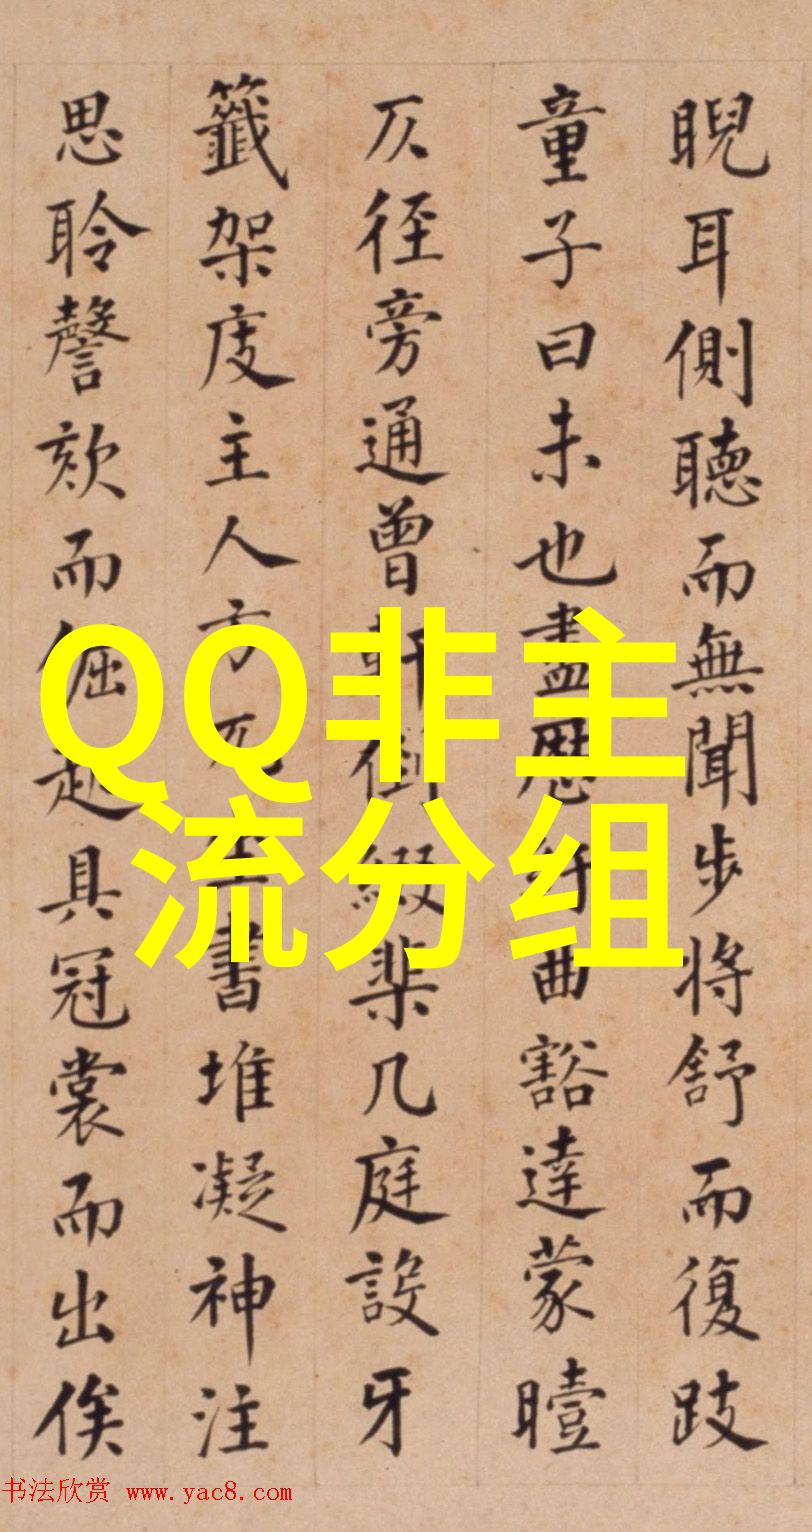 睨耳側聽而無聞步将舒而復跂
童子曰未也盡歷行曲豁達蒙曀
仄徑旁通曾軒倒綴棐几庭設牙
籤架庋主人方兀坐書堆凝神注
思聆謦欬而倔起具冠裳而出俟
QQ非主
流分组
书法欣赏 www.yac8.com